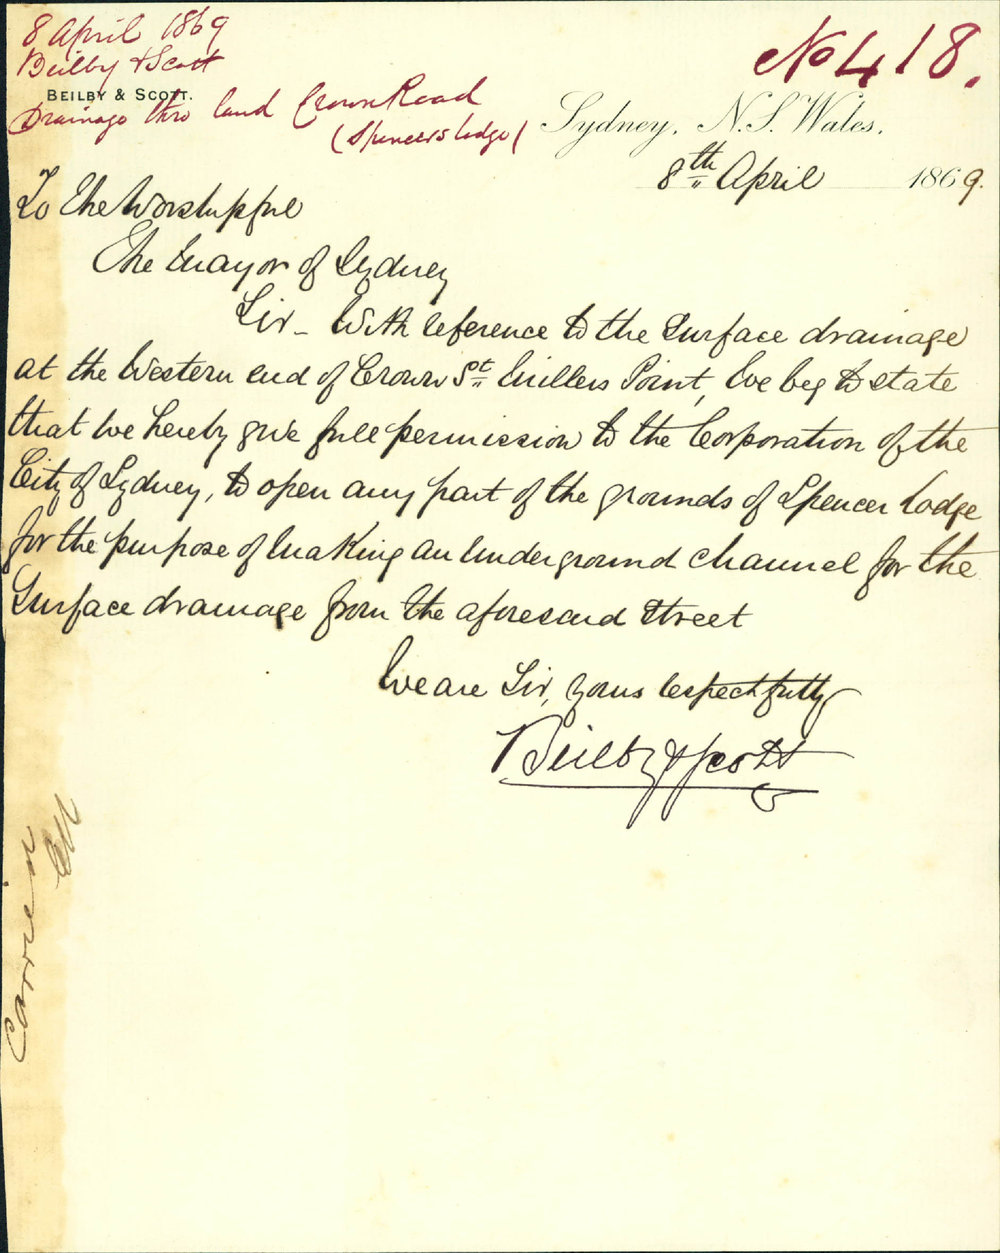 8 April 1869
Beilby & Scott
BEILBY & SCOTT.
Drainage thro land Crown Road
(Spencers Lodge)
No 418.
Sydney, N.S. Wales.
8th April 1869.
To The Worshipful
The Mayor of Sydney
Sir - With reference to the Surface drainage
at the Western end of Crown St Millers Point, We beg to state
that we hereby give full permission to the Corporation of the
City of Sydney, to open any part of the grounds of Spencer Lodge
for the purpose of making an underground channel for the
Surface drainage from the aforesaid street
We are Sir, yours respectfully
Beilby & Scott